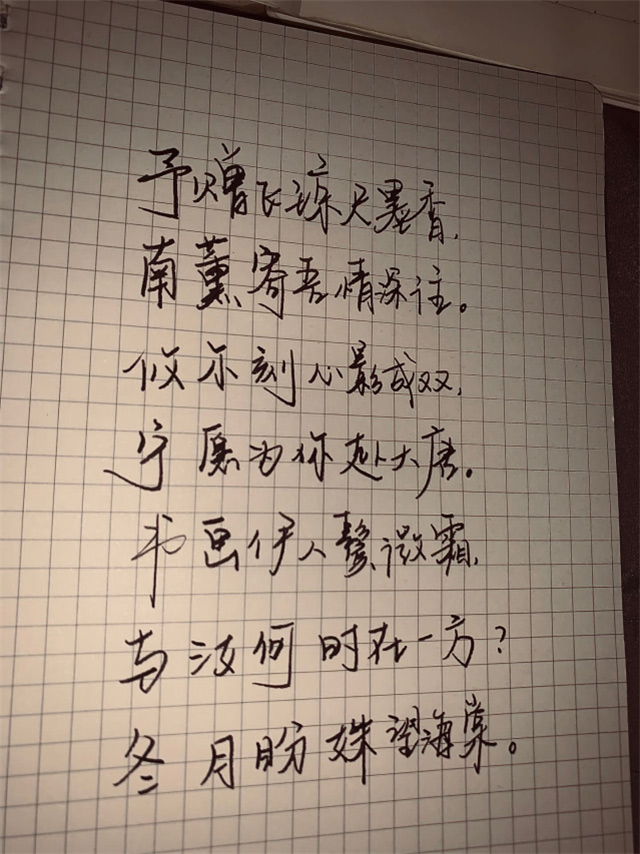 予赠飞琼尺墨香,
南薰寄吾情深注。
倏尔刻心影成双,
宁愿为你赴大唐。
书画伊人鬓微霜,
与汝何时在一方?
冬月盼姝望海棠。